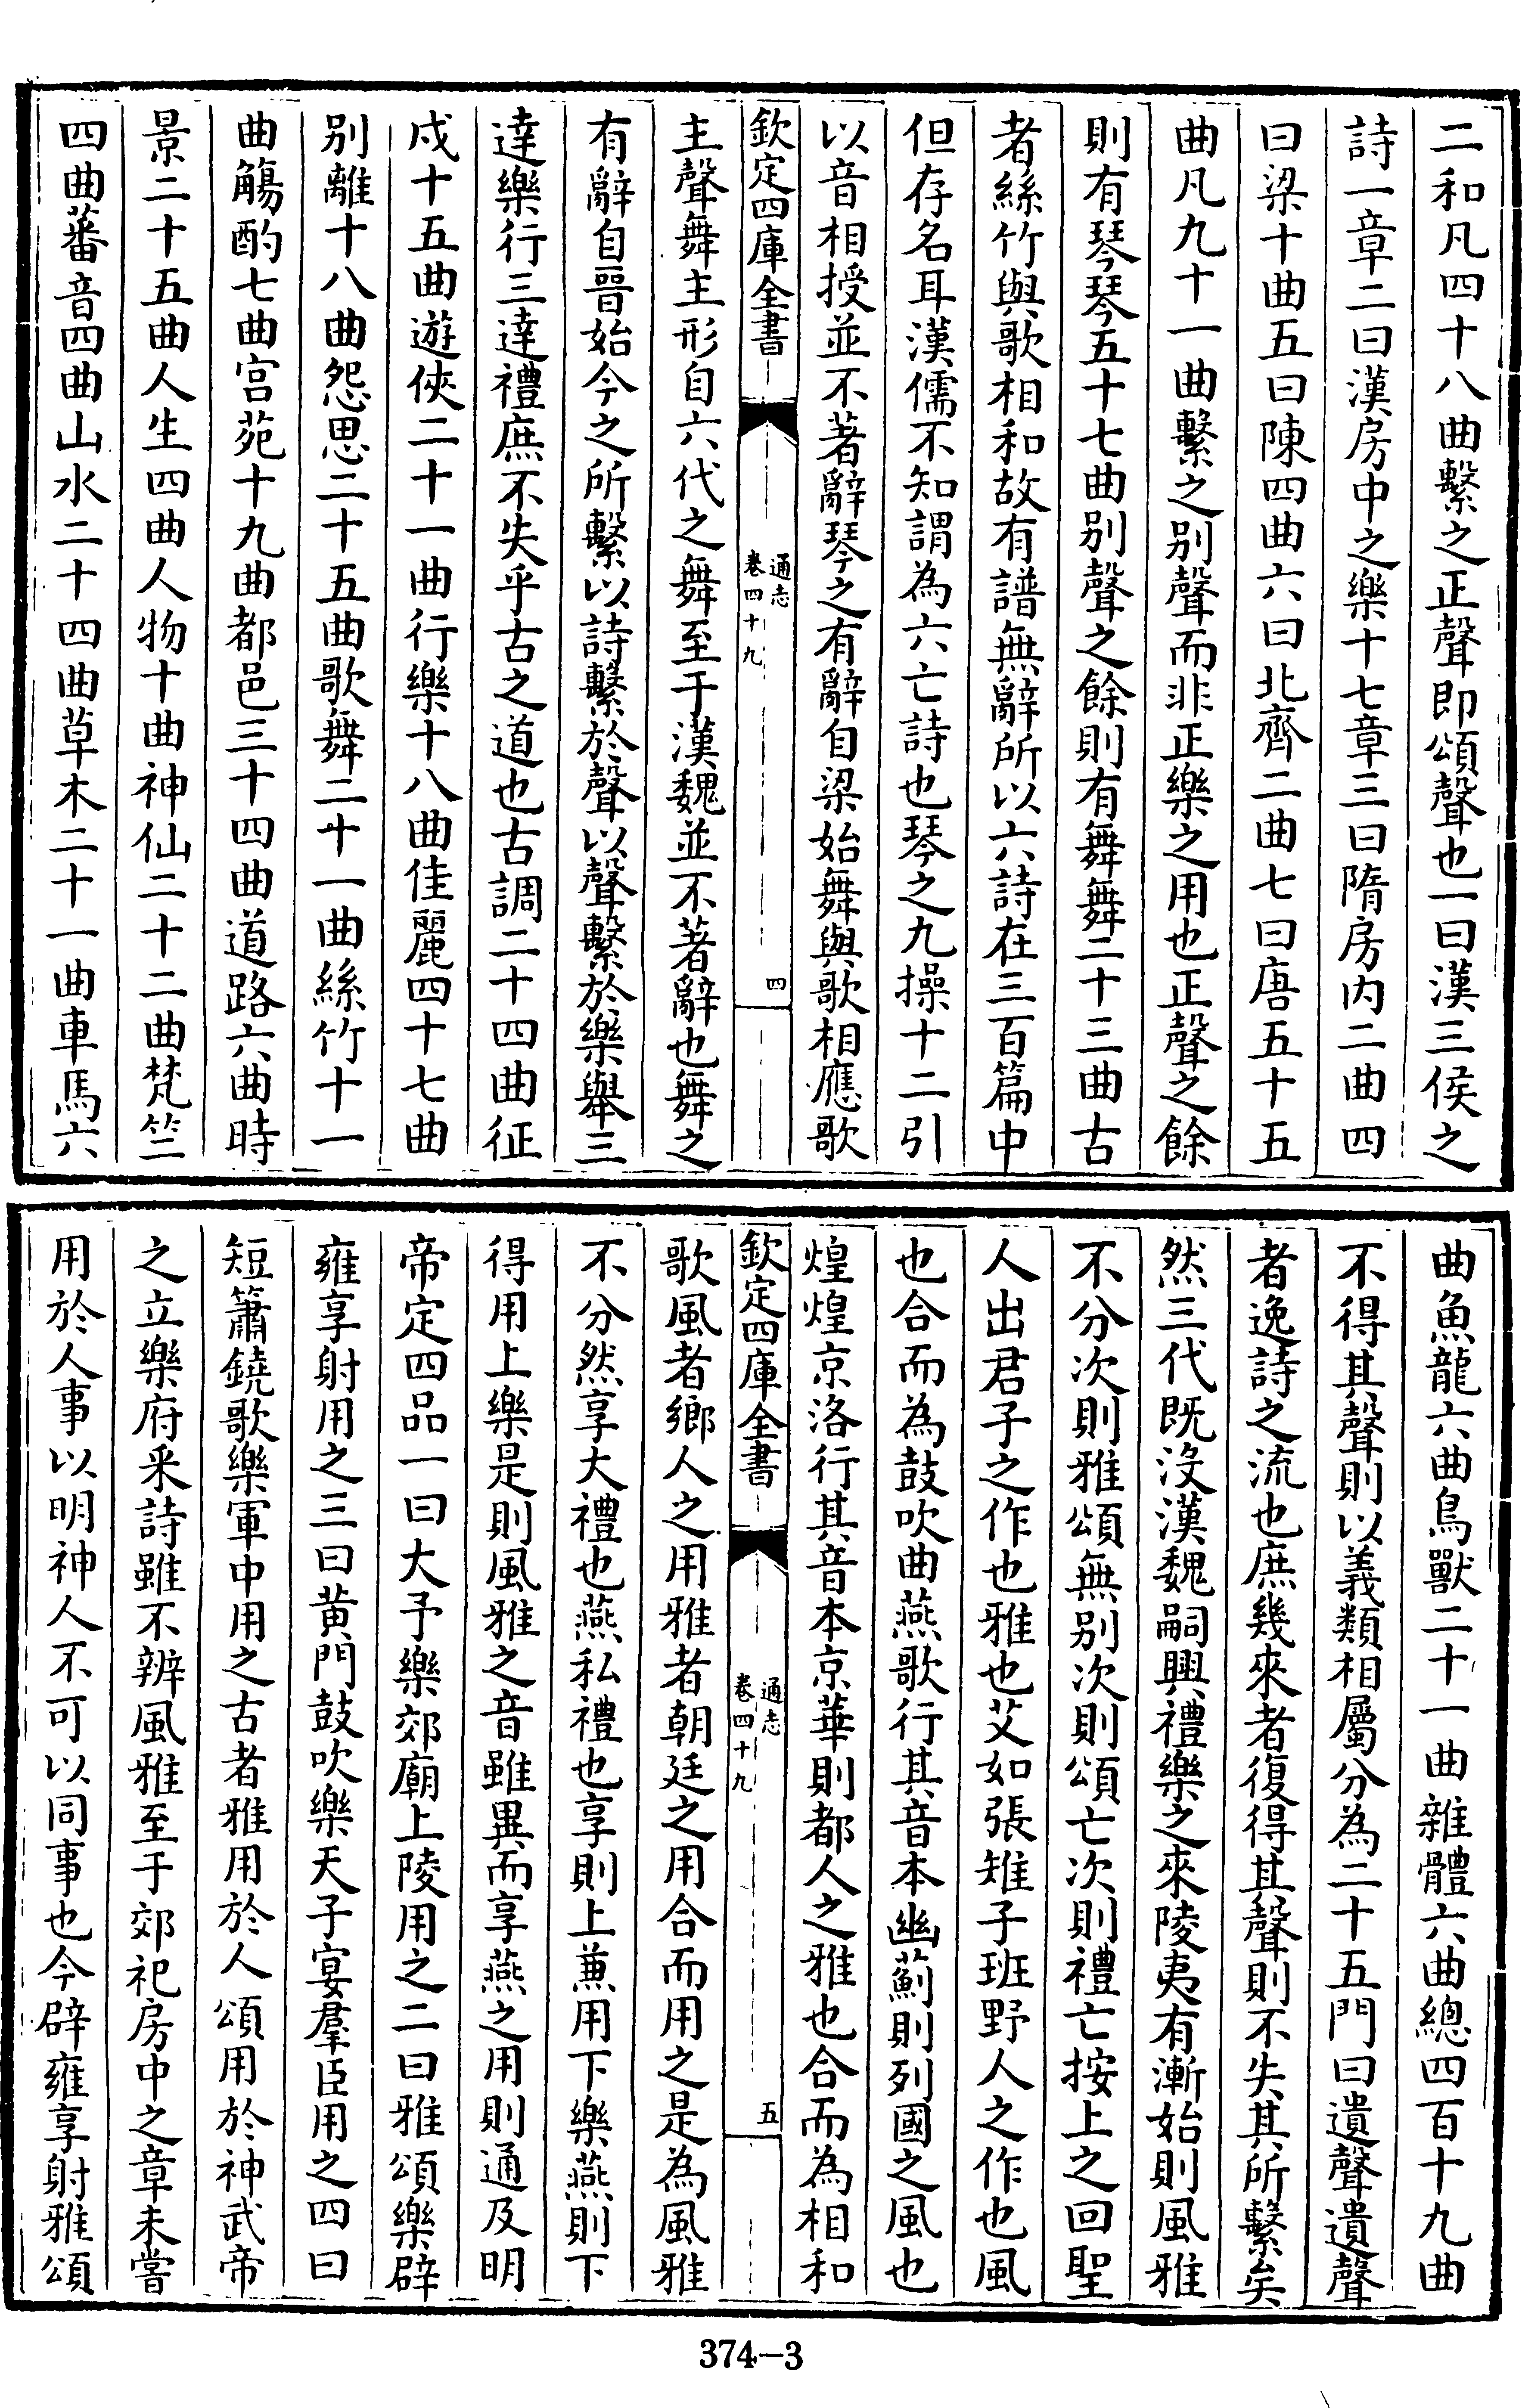 二和凡四十八曲繫之正聲即頌聲也一曰漢三侯之
詩一章二曰漢房中之樂十七章三曰隋房内二曲四
曰梁十曲五曰陳四曲六曰北齊二曲七曰唐五十五
曲凡九十一曲繫之别聲而非正樂之用也正聲之餘
則有琴琴五十七曲别聲之餘則有舞舞二十三曲古
者絲竹與歌相和故有譜無辭所以六詩在三百篇中
但存名耳漢儒不知謂為六亡詩也琴之九操十二引
以音相授並不著辭琴之有辭自梁始舞與歌相應歌
欽定四庫全書
通志
卷四十九
四
主聲舞主形自六代之舞至于漢魏並不著辭也舞之
有辭自晉始今之所繫以詩繫於聲以聲繫於樂舉三
達樂行三達禮庶不失乎古之道也古調二十四曲征
戍十五曲遊俠二十一曲行樂十八曲佳麗四十七曲
别離十八曲怨思二十五曲歌舞二十一曲絲竹十一
曲觴酌七曲宫苑十九曲都邑三十四曲道路六曲時
景二十五曲人生四曲人物十曲神仙二十二曲梵竺
四曲蕃音四曲山水二十四曲草木二十一曲車馬六
曲魚龍六曲鳥獸二十一曲雜體六曲總四百十九曲
不得其聲則以義類相屬分為二十五門曰遺聲遺聲
者逸詩之流也庶幾來者復得其聲則不失其所繫矣
然三代既沒漢魏嗣興禮樂之來陵夷有漸始則風雅
不分次則雅頌無别次則頌亡次則禮亡按上之回聖
人出君子之作也雅也艾如張雉子班野人之作也風
也合而為鼓吹曲燕歌行其音本幽薊則列國之風也
煌煌京洛行其音本京華則都人之雅也合而為相和
欽定四庫全書
通志
卷四十九
五
歌風者鄉人之用雅者朝廷之用合而用之是為風雅
不分然享大禮也燕私禮也享則上兼用下樂燕則下
得用上樂是則風雅之音雖異而享燕之用則通及明
帝定四品一曰大予樂郊廟上陵用之二曰雅頌樂辟
雍享射用之三曰黄門鼓吹樂天子宴羣臣用之四曰
短簫鐃歌樂軍中用之古者雅用於人頌用於神武帝
之立樂府采詩雖不辨風雅至于郊祀房中之章未嘗
用於人事以明神人不可以同事也今辟雍享射雅頌
374-3